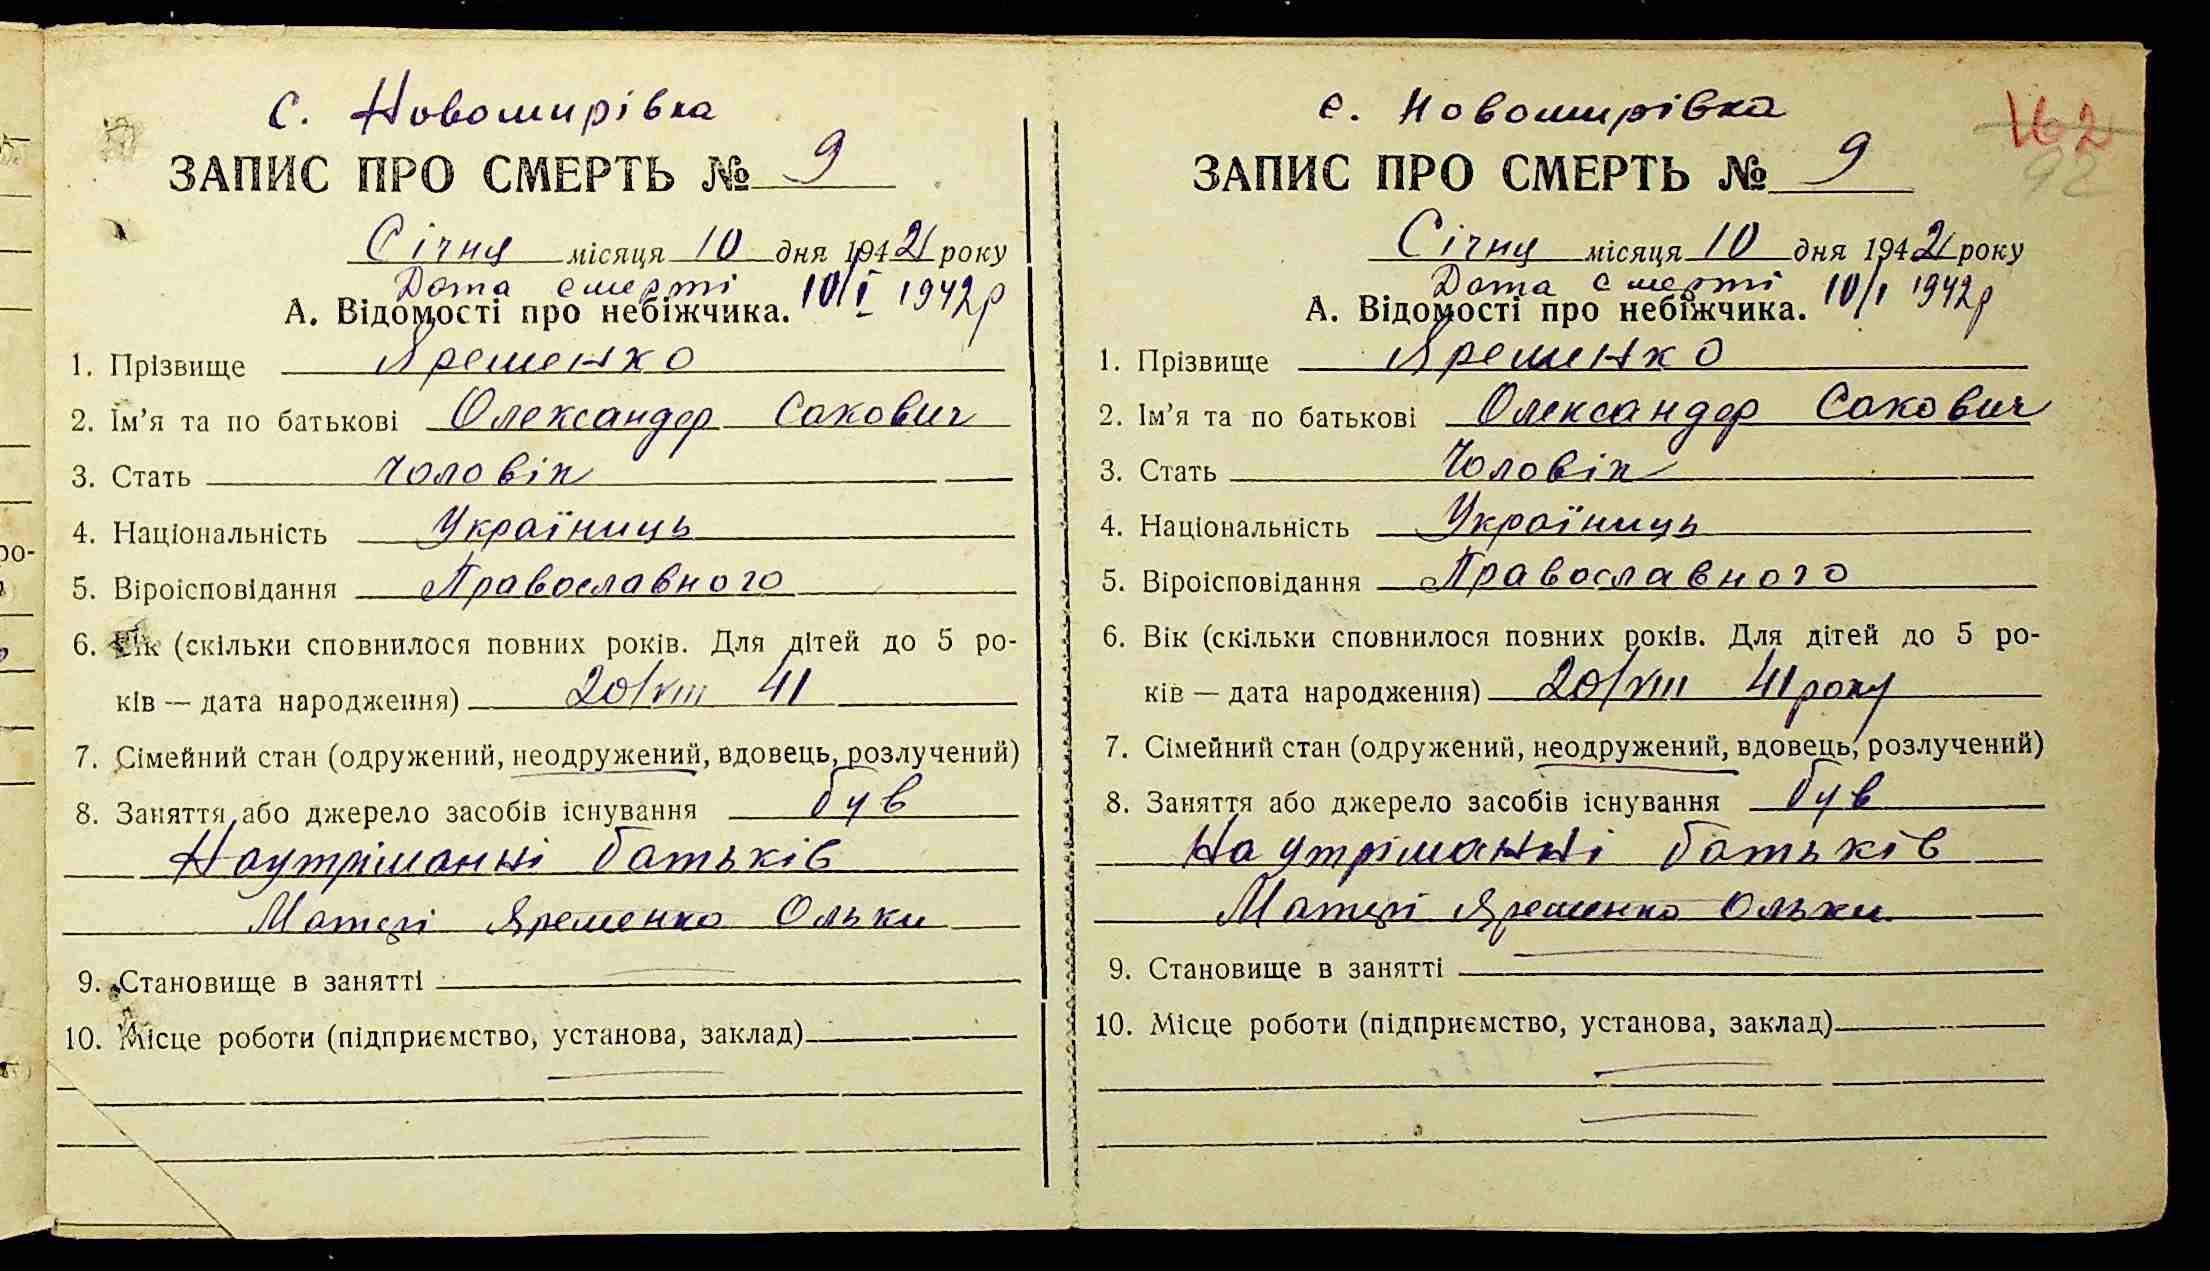 с. Новомирівка
ЗАПИС ПРО СМЕРТЬ № 9
Січня місяця 10 дня 1942 року
Дата смерті 10/I 1942р
А. Відомості про небіжчика.
1. Прізвище Яременко
2. Ім’я та по батькові Олександер Сакович
3. Стать чоловік
4. Національність Україниць
5. Віроісповідання Православного
6. Вік (скільки сповнилося повних років. Для дітей до 5 ро-
ків — дата народження) 20/VIII 41
7. Сімейний стан (одружений, неодружений, вдовець, розлучений)
8. Заняття або джерело засобів існування був
На утріманні батьків
Матері Яременко Ольки
9. Становище в занятті
10. Місце роботи (підприємство, установа, заклад)
с. Новомирівка
162
92
ЗАПИС ПРО СМЕРТЬ № 9
Січня місяця 10 дня 1942 року
Дата смерті 10/I 1942р
А. Відомості про небіжчика.
1. Прізвище Яременко
2. Ім’я та по батькові Олександер Сакович
3. Стать Чоловік
4. Національність Україниць
5. Віроісповідання Православного
6. Вік (скільки сповнилося повних років. Для дітей до 5 ро-
ків — дата народження) 20/VIII 41 року
7. Сімейний стан (одружений, неодружений, вдовець, розлучений)
8. Заняття або джерело засобів існування був
На утріманні батьків
Матері Яременко Ольки
9. Становище в занятті
10. Місце роботи (підприємство, установа, заклад)